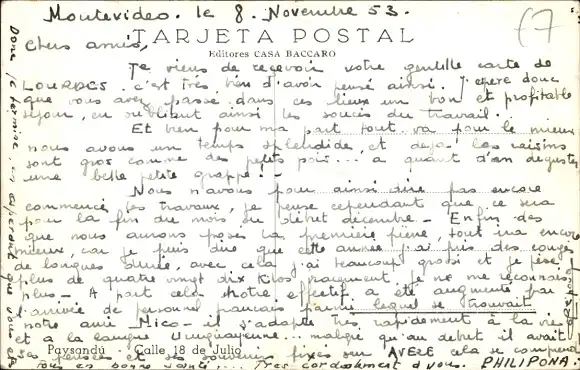 Montevideo. le 8. Novembre 53.
17
TARJETA POSTAL
Editores CASA BACCARO
Chers amis,
Je viens de recevoir votre gentille carte de
LOURDES. c'est très bien d'avoir pensé ainsi. J'espère donc
que vous avez passé dans ces lieux un bon et profitable
séjour, en oubliant ainsi les soucis du travail.
Et bien pour ma part tout va pour le mieux
nous avons un temps splendide, et déjà les raisins
sont gros comme des petits pois... a quant d'an deguster
une belle petite grappe!
Nous n'avons pour ainsi dire pas encore
commencé les travaux, je pense cependant que ce sera
pour la fin du mois ou début décembre - Enfin dès
que nous aurons posé la première pierre, tout ira encore
mieux, car je puis dire que cette année j'ai pris des congés
de longues durée, avec cela j'ai beaucoup grossi et je pèse
plus de quatre vingt dix kilos vraiment je ne me reconnais
plus - A part cela notre effectif a été augmenté par
l'arrivée de personnel français parmi lequel se trouvait
notre ami Mico - il s'adapte très rapidement à la vie
et a la langue Uruguayenne... malgré qu'au début il avait
ses pensées et ses souvenirs fixés sur AVEZE cela se comprend
Paysandú - Calle 18 de Julio
Donc je termine, en espérant que vous êtes
tous en bonne santé... Très cordialement à vous. PHILIPONA.